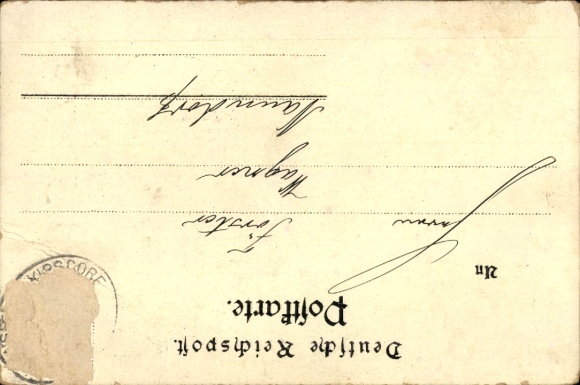 Deutsche Reichspost.
Postkarte.
An
Herrn Förster
Wagner
Naundorf
KIPSDORF